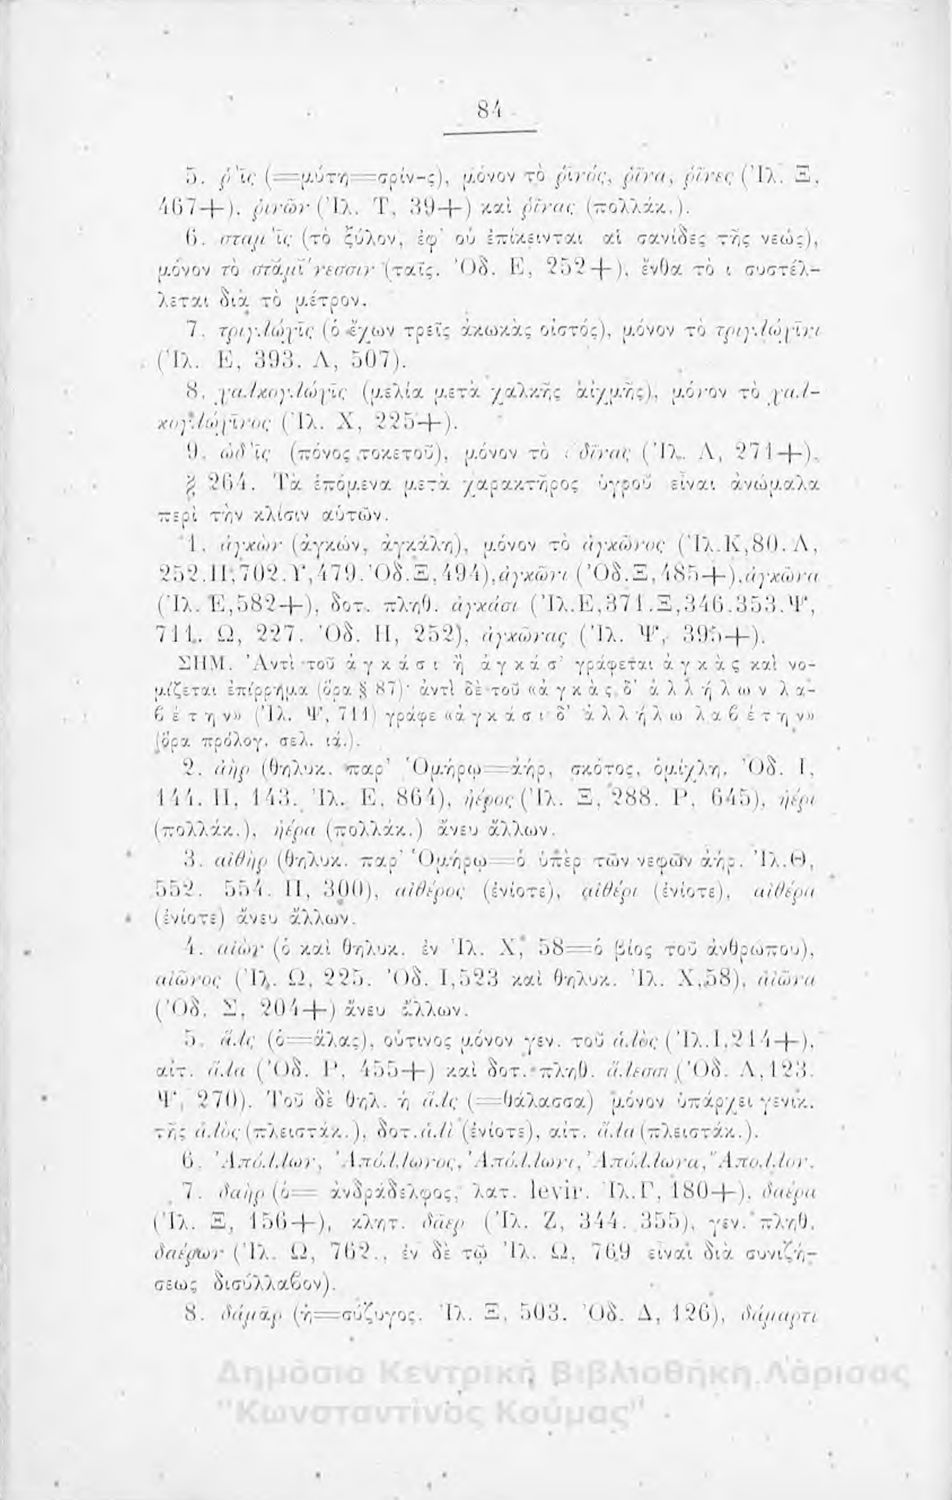 84
5. ῥ'ὶς (=μύτη=σρίν-ς), μόνον τὸ ῥῖνός, ῥῖνα, ῥῖνες (Ἰλ. Ξ,
467+). ῥινῶν (Ἰλ. Τ, 39+) καὶ ῥῖνας (πολλάκ.).
6. σταμ'ὶς (τὸ ξύλον, ἐφ' οὗ ἐπίκεινται αἱ σανίδες τῆς νεώς),
μόνον τὸ στάμῐ'νεσσιν (ταῖς. Ὀδ. Ε, 252+), ἔνθα τὸ ι συστέλ-
λεται διὰ τὸ μέτρον.
7. τριγλώχῑς (ὁ ἔχων τρεῖς ἀκωκὰς οἰστός), μόνον τὸ τριγλώχῑνι
(Ἰλ. Ε, 393. Λ, 507).
8. χαλκογλώχῑς (μελία μετὰ χαλκῆς αἰχμῆς), μόνον τὸ χαλ-
κογλώχῑνος (Ἰλ. Χ, 225+).
9. ὠδ'ὶς (πόνος τοκετοῦ), μόνον τὸ δῖνας (Ἰλ. Λ, 271+).
§ 264. Τὰ ἑπόμενα μετὰ χαρακτῆρος ὑγροῦ εἶναι ἀνώμαλα
περὶ τὴν κλίσιν αὐτῶν.
1. ἀγκὼν (ἀγκών, ἀγκάλη), μόνον τὸ ἀγκῶνος (Ἰλ.Κ,80.Λ,
252.Π,702.Υ,479.Ὀδ.Ξ,494), ἀγκῶνι (Ὀδ.Ξ,485+), ἀγκῶνα
(Ἰλ. Ε,582+), δοτ. πληθ. ἀγκάσι (Ἰλ.Ε,371.Ξ,346.353.Ψ,
711. Ω, 227. Ὀδ. Η, 252), ἀγκῶνας (Ἰλ. Ψ, 395+).
ΣΗΜ. Ἀντὶ τοῦ ἀ γ κ ά σ ι ἢ ἀ γ κ ά σ' γράφεται ἀ γ κ ὰ ς καὶ νο-
μίζεται ἐπίρρημα (ὅρα § 87)· ἀντὶ δὲ τοῦ «ἀ γ κ ὰ ς δ' ἀ λ λ ή λ ω ν λ α-
β έ τ η ν» (Ἰλ. Ψ, 711) γράφε «ἀ γ κ ά σ ι δ' ἀ λ λ ή λ ω λ α β έ τ η ν»
(ὅρα πρόλογ. σελ. ιά.).
2. ἀὴρ (θηλυκ. παρ' Ὁμήρῳ=ἀήρ, σκότος, ὁμίχλη. Ὀδ. Ι,
144. Π, 143. Ἰλ. Ε, 864), ἠέρος (Ἰλ. Ξ, 288. Ρ, 645), ἠέρι
(πολλάκ.), ἠέρα (πολλάκ.) ἄνευ ἄλλων.
3. αἰθὴρ (θηλυκ. παρ' Ὁμήρῳ=ὁ ὑπὲρ τῶν νεφῶν ἀήρ. Ἰλ.Θ,
552. 554. Π, 300), αἰθέρος (ἐνίοτε), αἰθέρι (ἐνίοτε), αἰθέρα
(ἐνίοτε) ἄνευ ἄλλων.
4. αἰὼν (ὁ καὶ θηλυκ. ἐν Ἰλ. Χ, 58=ὁ βίος τοῦ ἀνθρώπου),
αἰῶνος (Ἰλ. Ω, 225. Ὀδ. Ι,523 καὶ θηλυκ. Ἰλ. Χ,58), αἰῶνα
(Ὀδ. Σ, 204+) ἄνευ ἄλλων.
5. ἅλς (ὁ=ἅλας), οὗτινος μόνον γεν. τοῦ ἁλὸς (Ἰλ.Ι,214+),
αἰτ. ἅλα (Ὀδ. Ρ, 455+) καὶ δοτ. πληθ. ἅλεσσι (Ὀδ. Λ,123.
Ψ, 270). Τοῦ δὲ θηλ. ἡ ἅλς (=θάλασσα) μόνον ὑπάρχει γενικ.
τῆς ἁλὸς (πλειστάκ.), δοτ. ἁλὶ (ἐνίοτε), αἰτ. ἅλα (πλειστάκ.).
6. Ἀπόλλων, Ἀπόλλωνος, Ἀπόλλωνι, Ἀπόλλωνα, Ἄπολλον.
7. δαὴρ (ὁ= ἀνδράδελφος, λατ. levir. Ἰλ.Γ, 180+), δαέρα
(Ἰλ. Ξ, 156+), κλητ. δᾶερ (Ἰλ. Ζ, 344. 355), γεν. πληθ.
δαέρων (Ἰλ. Ω, 762., ἐν δὲ τῷ Ἰλ. Ω, 769 εἶναι διὰ συνιζή-
σεως δισύλλαβον).
8. δάμαρ (ἡ=σύζυγος. Ἰλ. Ξ, 503. Ὀδ. Δ, 126), δάμαρτι
Δημόσια Κεντρική Βιβλιοθήκη Λάρισας
"Κωνσταντίνος Κούμας"